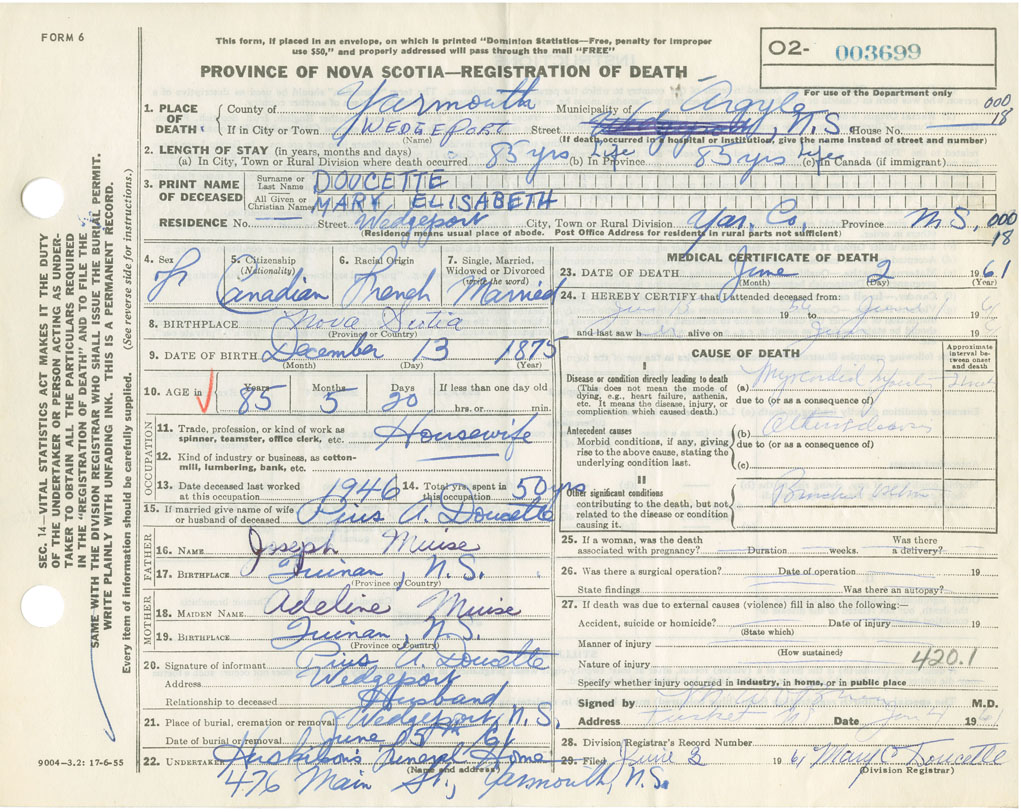 FORM 6
This form, if placed in an envelope, on which is printed "Dominion Statistics—Free, penalty for improper
use $50," and properly addressed will pass through the mail "FREE"
O2- 003699
For use of the Department only
PROVINCE OF NOVA SCOTIA—REGISTRATION OF DEATH
1. PLACE OF DEATH: County of Yarmouth Municipality of Argyle 000 18
If in City or Town WEDGEPORT Street N.S. House No.
(Name) (If death occurred in a hospital or institution, give the name instead of street and number)
2. LENGTH OF STAY (in years, months and days)
(a) In City, Town or Rural Division where death occurred 85 yrs (b) In Province 85 yrs (c) In Canada (if immigrant)
3. PRINT NAME OF DECEASED
Surname or Last Name DOUCETTE
All Given or Christian Names MARY ELISABETH
RESIDENCE No. Street Wedgeport City, Town or Rural Division Yar. Co. Province N.S. 000 18
(Residence means usual place of abode. Post Office Address for residents in rural parts not sufficient)
4. Sex F
5. Citizenship (Nationality) Canadian
6. Racial Origin French
7. Single, Married, Widowed or Divorced (write the word) Married
8. BIRTHPLACE Nova Scotia
(Province or Country)
9. DATE OF BIRTH December 13 1875
(Month) (Day) (Year)
10. AGE in Years 85 Months 5 Days 20 If less than one day old
hrs. or min.
OCCUPATION
11. Trade, profession, or kind of work as
spinner, teamster, office clerk, etc. Housewife
12. Kind of industry or business, as cotton-
mill, lumbering, bank, etc.
13. Date deceased last worked at this occupation 1946 14. Total yrs. spent in this occupation 50 yrs
15. If married give name of wife or husband of deceased Pius A. Doucette
FATHER
16. NAME Joseph Muise
17. BIRTHPLACE Quinan, N.S.
(Province or Country)
MOTHER
18. MAIDEN NAME Adeline Muise
19. BIRTHPLACE Quinan, N.S.
(Province or Country)
20. Signature of informant Pius A. Doucette
Address Wedgeport
Relationship to deceased Husband
21. Place of burial, cremation or removal Wedgeport, N.S.
Date of burial or removal June 5th 61
22. UNDERTAKER Funeral Home
(Name and address)
476 Main St., Yarmouth, N.S.
MEDICAL CERTIFICATE OF DEATH
23. DATE OF DEATH June 2 1961
(Month) (Day) (Year)
24. I HEREBY CERTIFY that I attended deceased from:
19 to 19
and last saw h alive on 19
CAUSE OF DEATH
Approximate interval between onset and death
I
Disease or condition directly leading to death
(This does not mean the mode of dying, e.g., heart failure, asthenia, etc. It means the disease, injury, or complication which caused death.)
(a) Myocardial
due to (or as a consequence of)
Antecedent causes
Morbid conditions, if any, giving rise to the above cause, stating the underlying condition last.
(b)
due to (or as a consequence of)
(c)
II
Other significant conditions
contributing to the death, but not related to the disease or condition causing it.
25. If a woman, was the death associated with pregnancy? Duration weeks. Was there a delivery?
26. Was there a surgical operation? Date of operation 19
State findings Was there an autopsy?
27. If death was due to external causes (violence) fill in also the following:—
Accident, suicide or homicide? Date of injury 19
(State which)
Manner of injury
(How sustained)
Nature of injury 420.1
Specify whether injury occurred in industry, in home, or in public place
Signed by M.D.
Address Tusket NS Date 19
28. Division Registrar's Record Number
29. Filed June 2 1961 Mary C Doucette
(Division Registrar)
SEC. 14—VITAL STATISTICS ACT MAKES IT THE DUTY
OF THE UNDERTAKER OR PERSON ACTING AS UNDER-
TAKER TO OBTAIN ALL THE PARTICULARS REQUIRED
IN THE "REGISTRATION OF DEATH" AND TO FILE THE
SAME WITH THE DIVISION REGISTRAR WHO SHALL ISSUE THE BURIAL PERMIT.
WRITE PLAINLY WITH UNFADING INK. THIS IS A PERMANENT RECORD.
Every item of information should be carefully supplied. (See reverse side for instructions.)
9004—3.2: 17-6-55